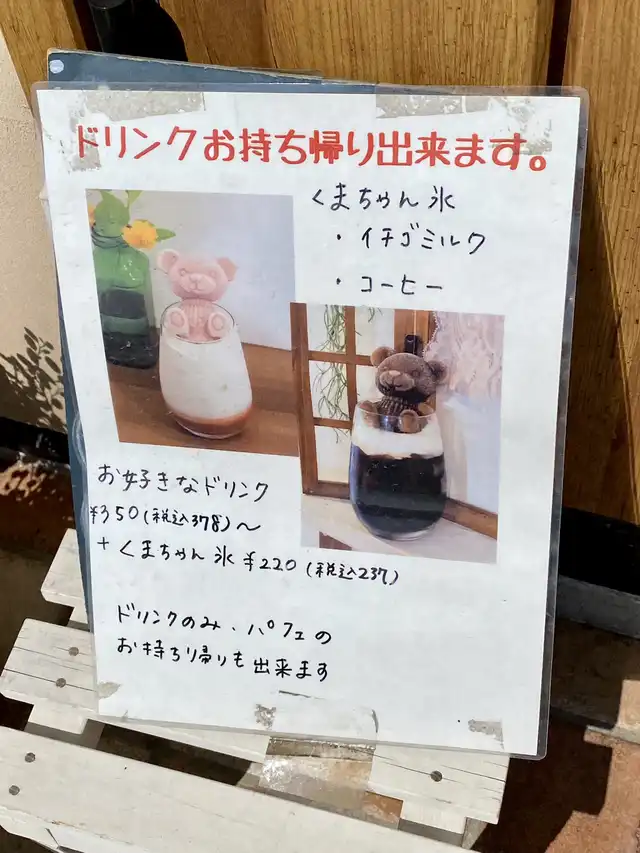 ドリンクお持ち帰り出来ます。
くまちゃん氷
・イチゴミルク
・コーヒー
お好きなドリンク
¥350(税込378)〜
+くまちゃん氷¥220(税込237)
ドリンクのみ・パフェの
お持ち帰りも出来ます